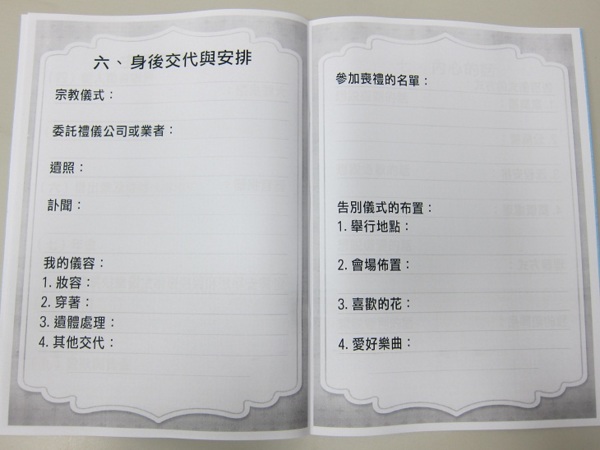 六、身後交代與安排
宗教儀式：
委託禮儀公司或業者：
遺照：
訃聞：
我的儀容：
1.妝容：
2.穿著：
3.遺體處理：
4.其他交代：
參加喪禮的名單：
告別儀式的布置：
1.舉行地點：
2.會場佈置：
3.喜歡的花：
4.愛好樂曲：